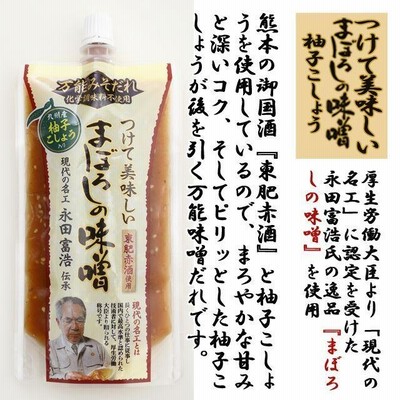 つけて美味しい
まぼろしの味噌
柚子こしょう
厚生労働大臣より「現代の
名工」に認定を受けた
永田富浩氏の逸品『まぼろ
しの味噌』を使用
熊本の御国酒『東肥赤酒』と柚子こしょ
うを使用しているので、まろやかな甘み
と深いコク、そしてピリッとした柚子こ
しょうが後を引く万能味噌だれです。
万能みそだれ
化学調味料不使用
九州産
柚子
こしょう
入り
つけて美味しい
まぼろしの味噌
東肥赤酒使用
現代の名工 永田富浩 伝承
現代の名工とは